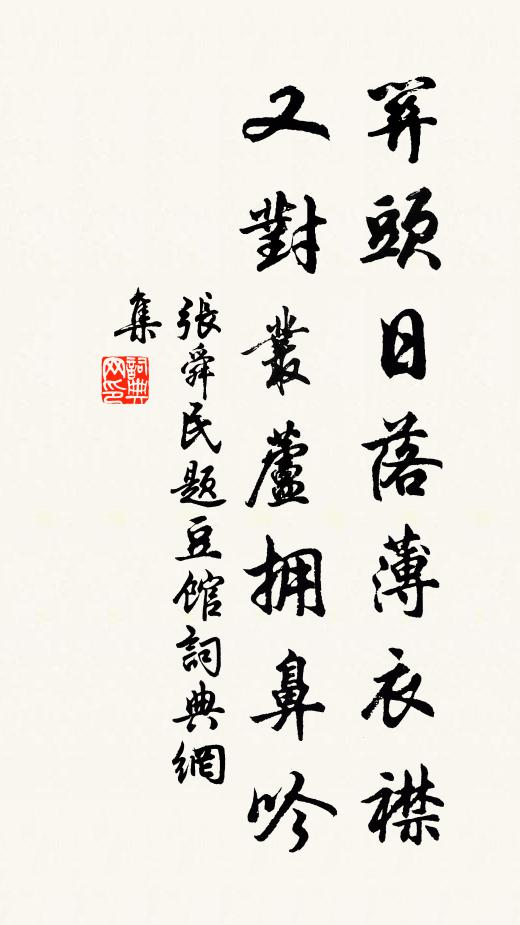 笄頭日落薄衣襟
又對叢蘆拥鼻吟
張舜民題豆館詞典網
集
詞典
网印